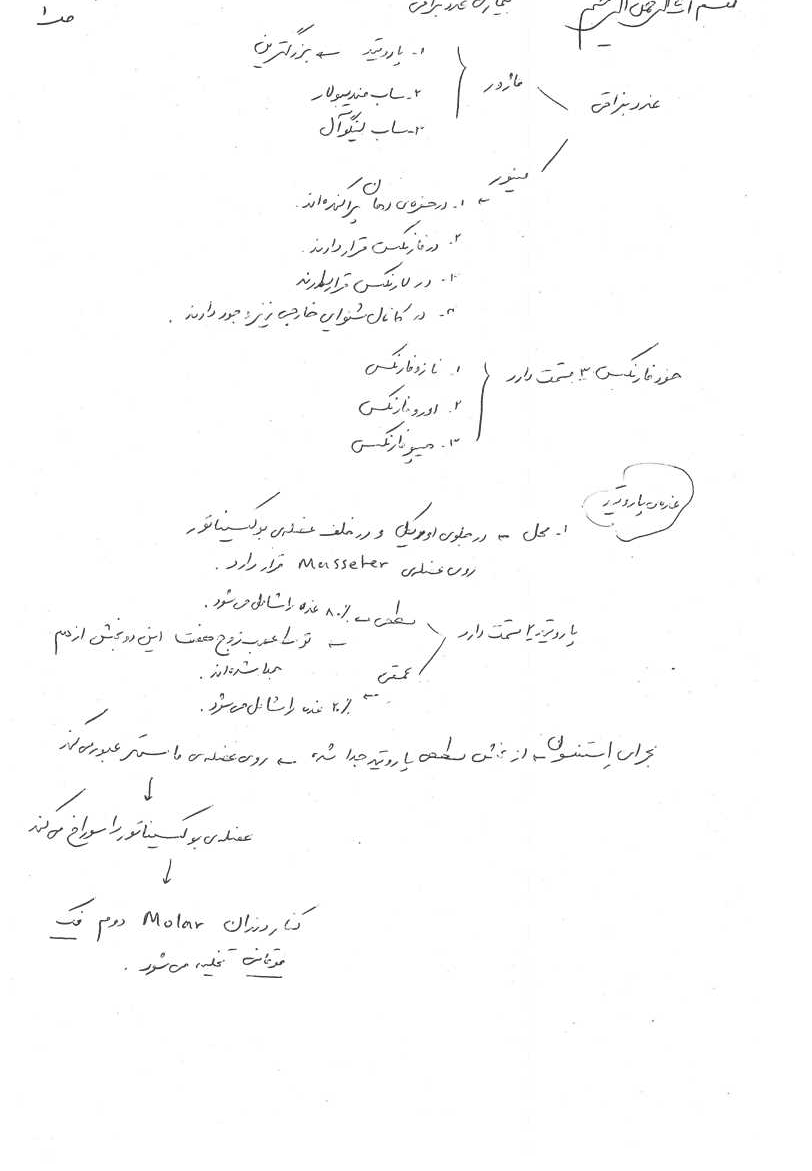 بسم الله الرحمن الرحیم
بیماری غدد بزاقی
ص۱
غدد بزاقی
ماژور
۱- پاروتید ← بزرگترین
۲- ساب مندیبولار
۳- ساب لینگوآل
مینور
۱. در حفره‌ی دهان پراکنده‌اند.
۲. در فارنکس قرار دارند.
۳. در لارنکس قرار دارند
۴. در کانال شنوایی خارجی نیز وجود دارند.
خود فارنکس ۳ قسمت دارد
۱. نازوفارنکس
۲. اوروفارنکس
۳. هیپوفارنکس
غده‌ی پاروتید
۱- محل ← در جلوی اوریکل و در خلف عضله‌ی بوکسیناتور
روی عضله‌ی Masseter قرار دارد.
پاروتید ۲ قسمت دارد
سطحی ← ۸۰٪ غده را شامل می‌شود.
← توسط عصب زوج هفت این دو بخش از هم
جدا شده‌اند.
عمقی
← ۲۰٪ غده را شامل می‌شود.
مجرای استنسون ← از بخش سطحی پاروتید جدا شده ← روی عضله‌ی ماستر عبور می‌کند
↓
عضله‌ی بوکسیناتور را سوراخ می‌کند
↓
کنار دندان Molar دوم فک
فوقانی تخلیه می‌شود.